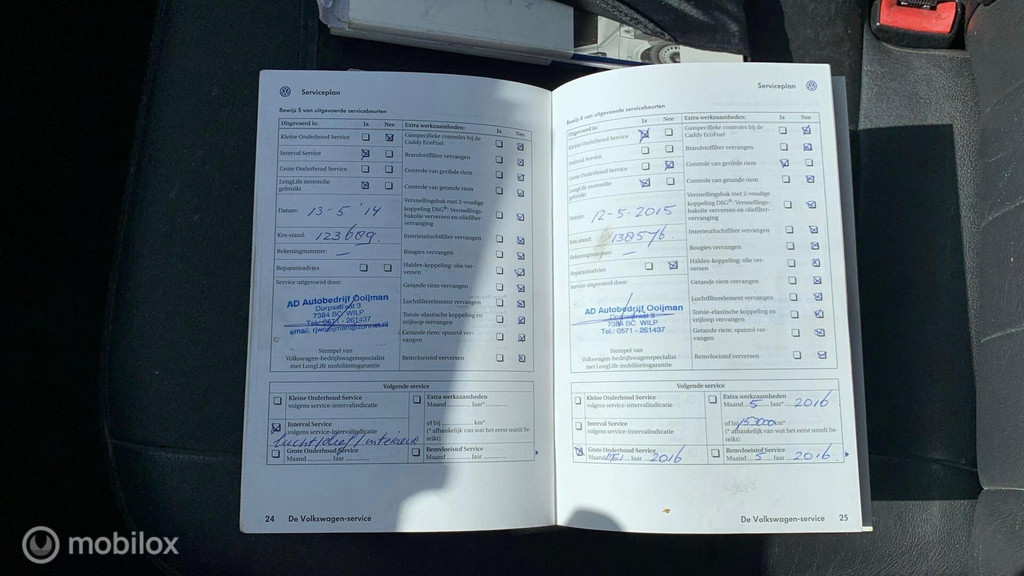 Serviceplan
Bewijs 5 van uitgevoerde servicebeurten
Uitgevoerd is: Ja Nee
Kleine Onderhoud Service
Interval Service
Grote Onderhoud Service
LongLife motorolie
gebruikt
Datum: 13-5 '14
Km-stand: 123689.
Rekeningnummer: —
Reparatieadvies
Service uitgevoerd door:
AD Autobedrijf Ooijman
Dorpsstraat 3
7384 BC WILP
Tel: 0571 - 261437
email: rjwooijman@zonnet.nl
Stempel van
Volkswagen-bedrijfswagenspecialist
met LongLife mobiliteitsgarantie
Extra werkzaamheden: Ja Nee
Gasspecifieke controles bij de
Caddy EcoFuel
Brandstoffilter vervangen
Controle van geribde riem
Controle van getande riem
Versnellingsbak met 2-voudige
koppeling DSG®: Versnellings-
bakolie verversen en oliefilter-
vervanging
Interieurluchtfilter vervangen
Bougies vervangen
Haldex-koppeling: olie ver-
versen
Getande riem vervangen
Luchtfilterelement vervangen
Torsie-elastische koppeling en
vrijloop vervangen
Getande riem: spanrol ver-
vangen
Remvloeistof verversen
Volgende service
Kleine Onderhoud Service
volgens service-intervalindicatie
Interval Service
volgens service-intervalindicatie
Grote Onderhoud Service
Maand Jaar
Extra werkzaamheden
Maand Jaar*
of bij km*
(* afhankelijk van wat het eerst wordt be-
reikt)
Remvloeistof Service
Maand Jaar
24 De Volkswagen-service
Serviceplan
Bewijs 6 van uitgevoerde servicebeurten
Uitgevoerd is: Ja Nee
Kleine Onderhoud Service
Interval Service
Grote Onderhoud Service
LongLife motorolie
gebruikt
Datum: 12-5-2015
Km-stand: 138576.
Rekeningnummer: —
Reparatieadvies
Service uitgevoerd door:
AD Autobedrijf Ooijman
Dorpsstraat 3
7384 BC WILP
Tel: 0571 - 261437
Stempel van
Volkswagen-bedrijfswagenspecialist
met LongLife mobiliteitsgarantie
Extra werkzaamheden: Ja Nee
Gasspecifieke controles bij de
Caddy EcoFuel
Brandstoffilter vervangen
Controle van geribde riem
Controle van getande riem
Versnellingsbak met 2-voudige
koppeling DSG®: Versnellings-
bakolie verversen en oliefilter-
vervanging
Interieurluchtfilter vervangen
Bougies vervangen
Haldex-koppeling: olie ver-
versen
Getande riem vervangen
Luchtfilterelement vervangen
Torsie-elastische koppeling en
vrijloop vervangen
Getande riem: spanrol ver-
vangen
Remvloeistof verversen
Volgende service
Kleine Onderhoud Service
volgens service-intervalindicatie
Interval Service
volgens service-intervalindicatie
Grote Onderhoud Service
Maand Jaar 2016
Extra werkzaamheden
Maand 5 2016
of bij km*
(* afhankelijk van wat het eerst wordt be-
reikt)
Remvloeistof Service
Maand 5 Jaar 2016
De Volkswagen-service 25
mobilox